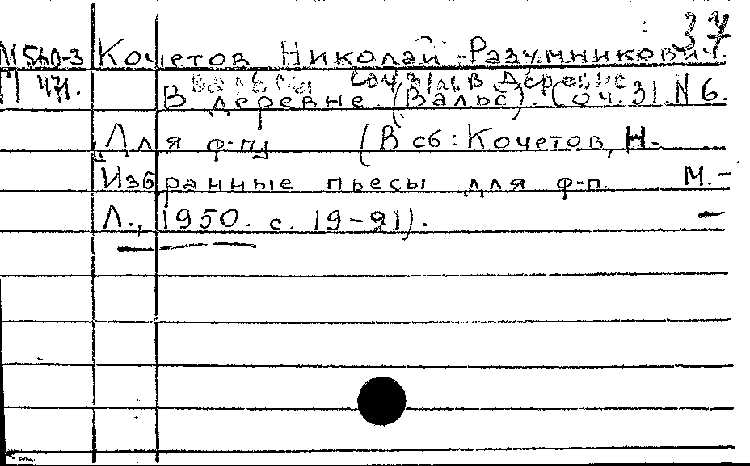 37
N 560-3 Кочетов Николай Разумникович.
П 471.
В деревне. (Вальс). (оч. 31 N 6.
Для ф-п. (В сб: Кочетов, Н.
Избранные пьесы для ф-п. М.-
Л., 1950. с. 19-21).